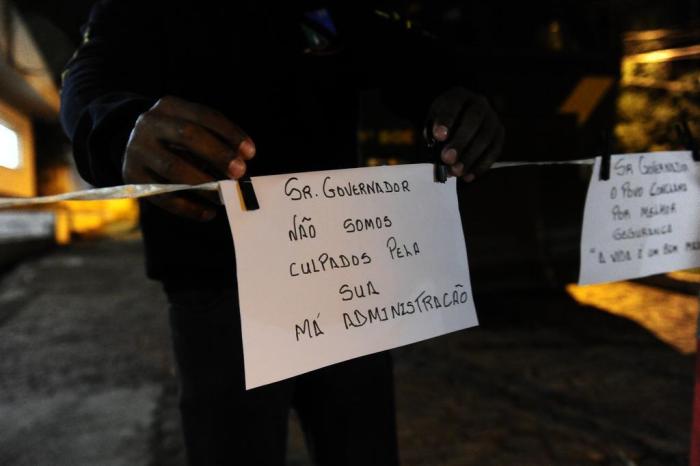 SR. GOVERNADOR
NÃO SOMOS
CULPADOS PELA
SUA
MÁ ADMINISTRACÃO
SR GOVERNADOR
O POVO CONCLAMA
POR MELHOR
SEGURANÇA
"A VIDA É UM BEM